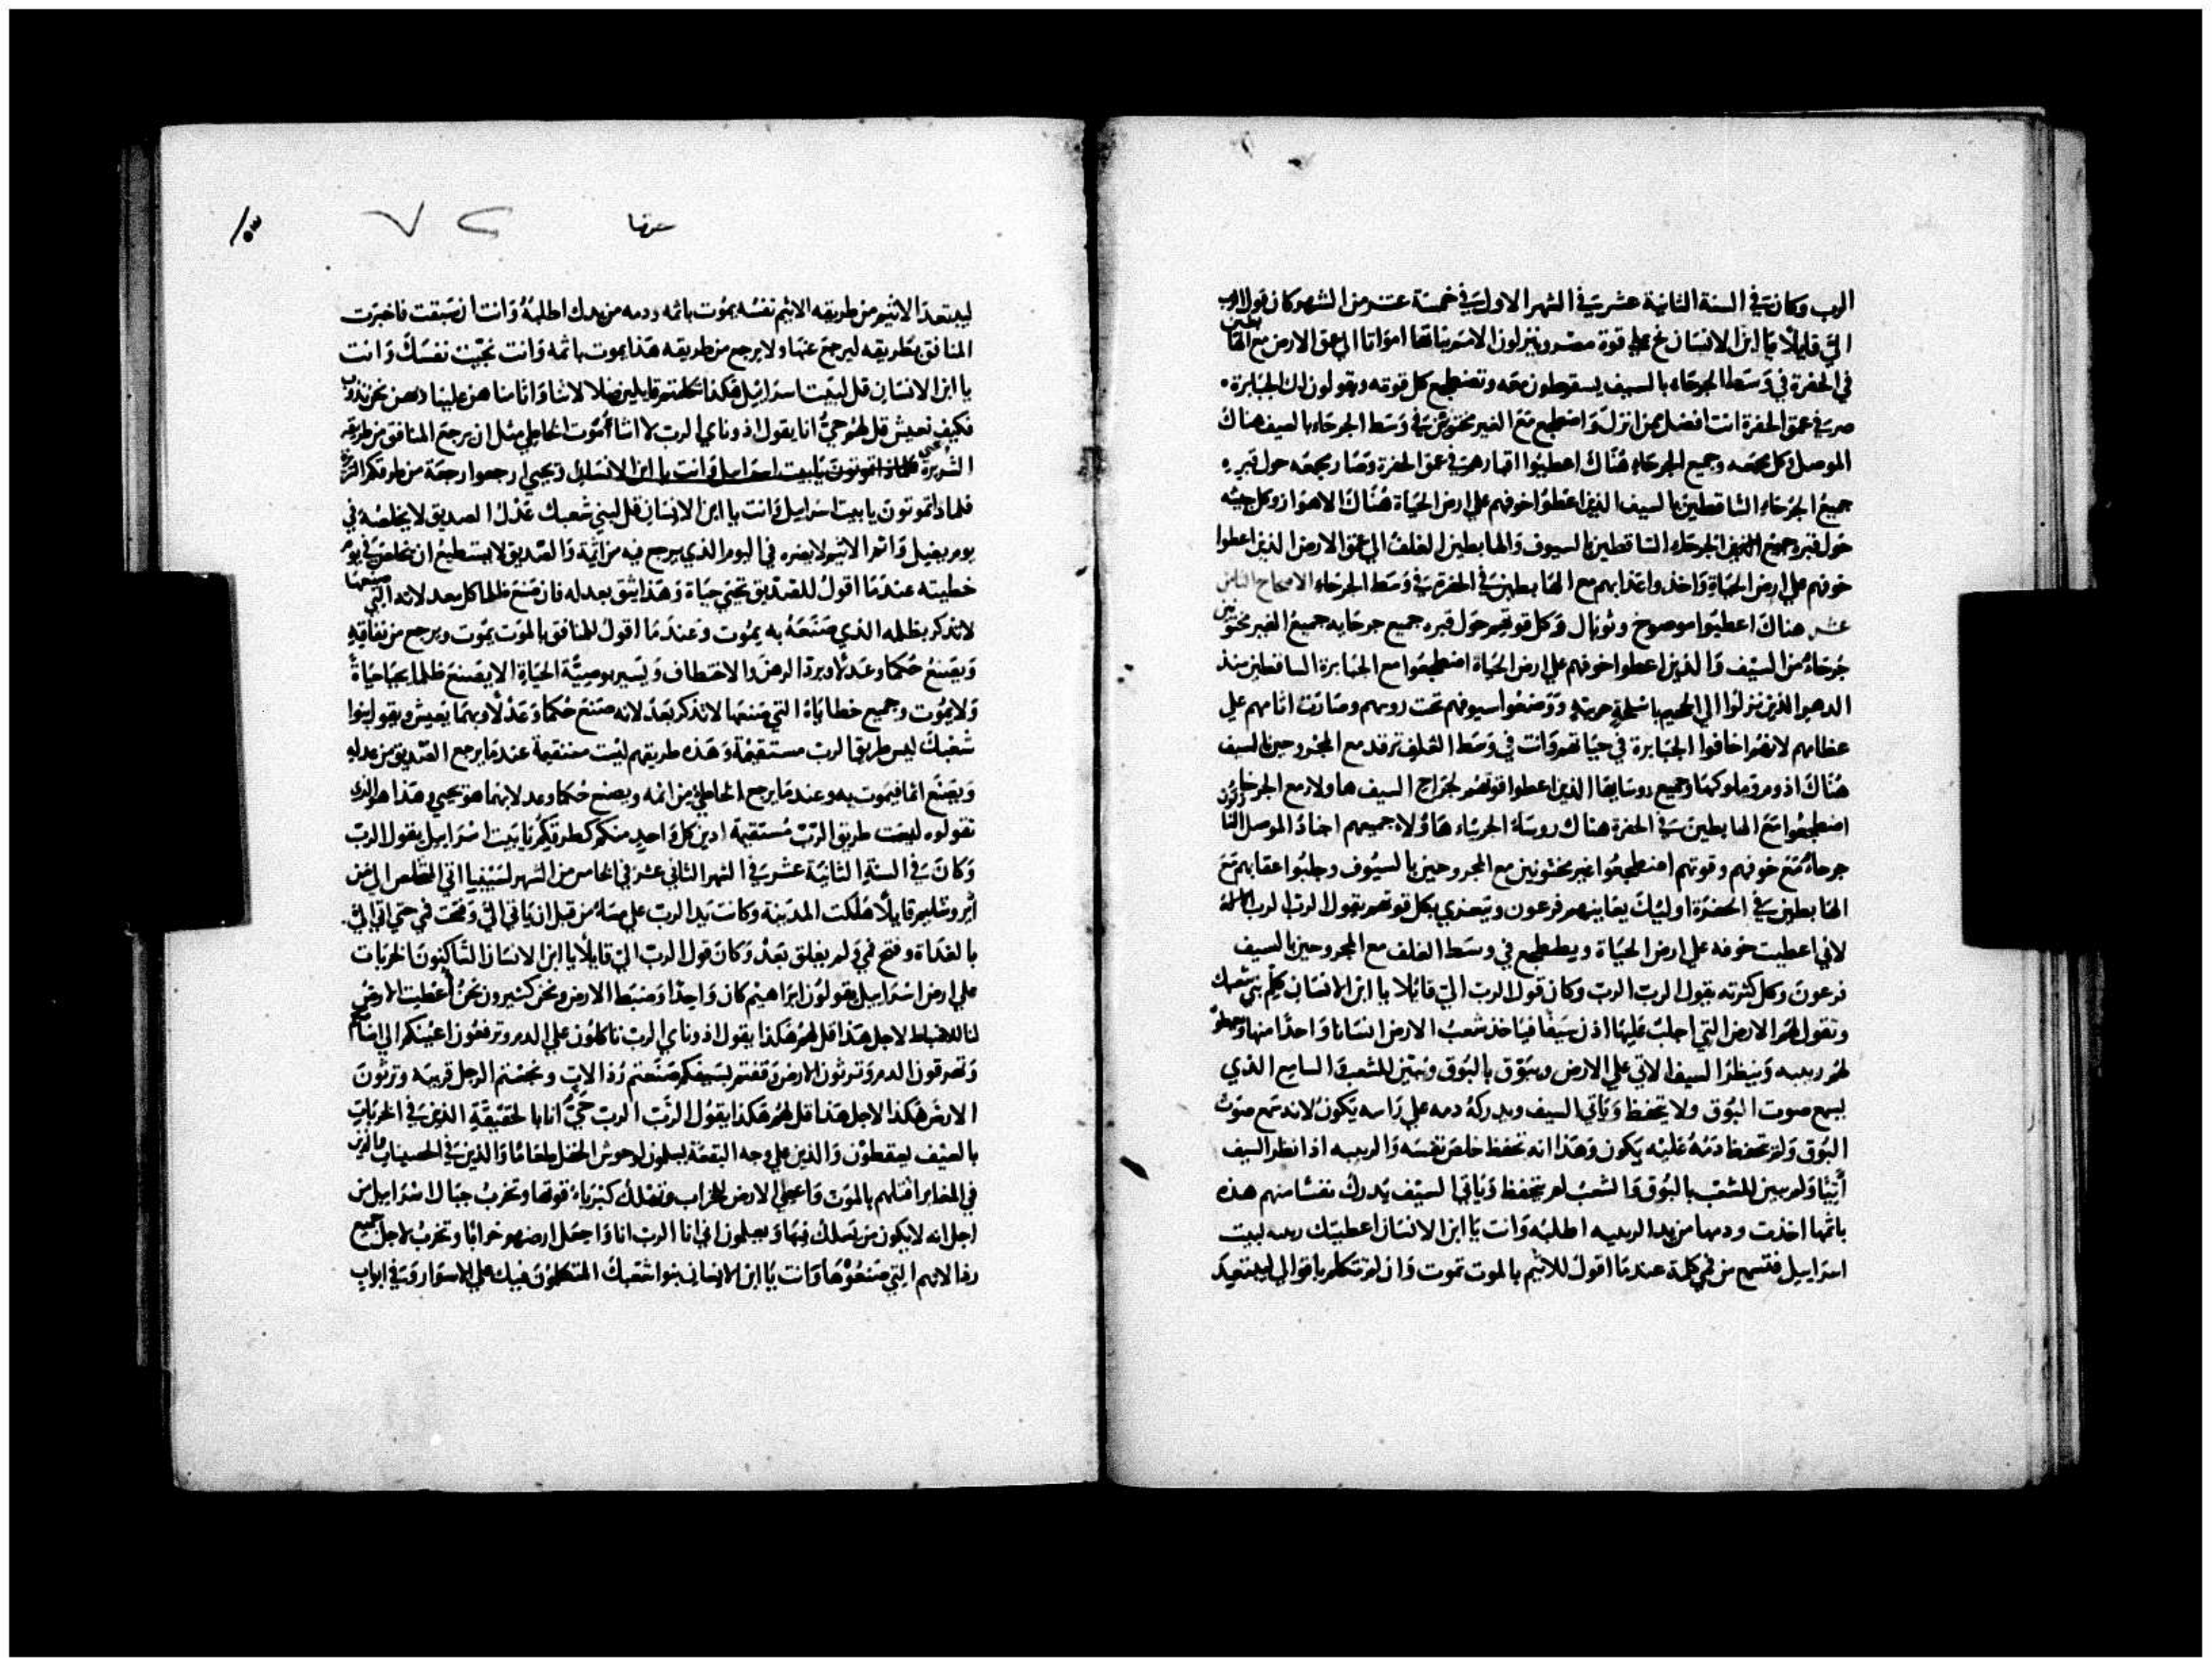 الرب وكان في السنة الثانية عشر في الشهر الاول في خمسة عشر من الشهر كان قول الرب
الي قايلا يا ابن الانسان نح علي قوة مصر وينزلون الامم بناتها امواتا الي عمق الارض مع الهابطين
في الحفرة في وسط الجرحاء بالسيف يسقطون معه وتضطجع كل قوته ويقولون لك الجبابرة
صر في عمق الحفرة انت افضل من انزل واضطجع مع الغير مختونين في وسط الجرحاء بالسيف هناك
الموصل وكل مجمعه وجميع الجرحاء هناك اعطيوا اقبارهم في عمق الحفرة وصار مجمعه حول قبره
جميع الجرحاء الساقطين بالسيف الذين اعطوا خوفهم علي ارض الحياة هناك الاهواز وكل جيشه
حول قبره جميع الجرحاء الساقطين بالسيوف والهابطين الغلف الي عمق الارض الذين اعطوا
خوفهم علي ارض الحياة واخذوا عذابهم مع الهابطين في الحفرة في وسط الجرحاء الاصحاح الثامن
عشر هناك اعطيوا موصوخ وثوبال وكل قوتهم حول قبره جميع جرحايه جميع الغير مختونين
جرحاء من السيف والذين اعطوا خوفهم علي ارض الحياة اضطجعوا مع الجبابرة الساقطين منذ
الدهر الذين نزلوا الي الجحيم باسلحة حربية ووضعوا سيوفهم تحت روسهم وصارت اثامهم علي
عظامهم لانهم اخافوا الجبابرة في حياتهم وانت في وسط الغلف ترقد مع المجروحين بالسيف
هناك ادوم وملوكها وجميع روسايها الذين اعطوا قوتهم لجراح السيف هاولاء مع الجرحاء
اضطجعوا مع الهابطين في الحفرة هناك روساء الجربياء هاولاء جميعهم اجناد الموصل النازلون
جرحاء مع خوفهم وقوتهم اضطجعوا غير مختونين مع المجروحين بالسيوف وجلبوا عقابهم مع
الهابطين في الحفرة اوليك يعاينهم فرعون ويتعزي بكل قوتهم يقول الرب الرب
لاني اعطيت خوفه علي ارض الحياة ويضطجع في وسط الغلف مع المجروحين بالسيف
فرعون وكل كثرته يقول الرب الرب وكان قول الرب الي قايلا يا ابن الانسان كلم بني شعبك
وتقول لهم الارض التي اجلب عليها اذن سيفا فياخذ شعب الارض انسانا واحدا منها
لهم ربيبه وينظر السيف الاتي علي الارض ويبوق بالبوق ويبين للشعب والسامع الذي
يسمع صوت البوق ولا يتحفظ وياتي السيف ويدركه دمه علي راسه يكون لانه سمع صوت
البوق ولم يتحفظ دمه عليه يكون وهذا انه تحفظ خلص نفسه والربيبه اذا نظر السيف
اتيا ولم يبين للشعب بالبوق والشعب لم يتحفظ وياتي السيف يدرك نفسا منهم هذه
باثمها اخذت ودمها من يد الربيبه اطلبه وانت يا ابن الانسان اعطيتك ربيبه لبيت
اسراييل فتسمع من في كلمة عندما اقول للاثيم بالموت تموت وان لم تتكلم باقوالي ليبتعد
ليبتعد الاثيم من طريقه الاثيم نفسه يموت باثمه ودمه من يدك اطلبه وانت ان سبقت فاخبرت
المنافق بطريقه ليرجع عنها ولا يرجع من طريقه هذا يموت باثمه وانت نجيت نفسك وانت
يا ابن الانسان قل لبيت اسراييل هكذا تكلمتم قايلين ضلالاتنا واثامنا هن علينا وهن نحن نذوب
فكيف نعيش قل لهم حي انا يقول ادوناي الرب لا اشا موت الخاطي مثل ان يرجع المنافق من طريقه
الشريرة ويحيي ارجعوا رجعة من طرقكم
فلماذا تموتون يا بيت اسراييل وانت يا ابن الانسان قل لبني شعبك عدل الصديق لا يخلصه في
يوم يضل واثم الاثيم لا يضره في اليوم الذي يرجع فيه من اثمه والصديق لا يستطيع ان يخلص في يوم
خطيته عندما اقول للصديق تحيي حياة وهذا يثق بعدله فان صنع ظلما كل عدلاته التي صنعها
لا تذكر بظلمه الذي صنعه به يموت وعندما اقول للمنافق بالموت يموت ويرجع من نفاقه
ويصنع حكما وعدلا ويرد الرهن والاختطاف ويسير بوصية الحياة الا يصنع ظلما يحيا حياة
ولا يموت وجميع خطاياه التي صنعها لا تذكر بعد لانه صنع حكما وعدلا وبهما يعيش ويقول بنوا
شعبك ليس طريق الرب مستقيمة وهذه طريقهم ليست مستقيمة عندما يرجع الصديق من عدله
ويصنع اثما فيموت به وعندما يرجع الخاطي من اثمه ويصنع حكما وعدلا بهما هو يحيي وهذا هو الذي
تقولوه ليست طريق الرب مستقيمة ادين كل واحد منكم كطرقكم يا بيت اسراييل يقول الرب
وكان في السنة الثانية عشر في الشهر الثاني عشر في الخامس من الشهر لسبينا اتي المخلص الي من
اورشليم قايلا هلكت المدينة وكانت يد الرب علي مساء من قبل ان ياتي الي وفتحت في حتي اتي الي
بالغداة وفتح في ولم يغلق بعد وكان قول الرب الي قايلا يا ابن الانسان الساكنون الخربات
علي ارض اسراييل يقولون ابراهيم كان واحدا وضبط الارض ونحن كثيرون نحن اعطيت الارض
لنا للاضباط لاجل هذا قل لهم هكذا يقول ادوناي الرب تاكلون علي الدم وترفعون اعينكم الي
وتهرقون الدم وترثون الارض وقفتم بسيفكم صنعتم رذالات ونجستم الرجل قريبه وترثون
الارض هكذا لاجل هذا قل لهم هكذا يقول الرب الرب حي انا بالحقيقة الذين في الخربات
بالسيف يسقطون والذين علي وجه البقعة يسلمون لوحوش الحقل طعاما والذين في الحصينات والذين
في المغاير اقتلهم بالموت واعطي الارض للخراب وتهلك كبرياء قوتها وتخرب جبال اسراييل من
اجل انه لا يكون من يسلك فيها ويعلمون اني انا الرب انا واجعل ارضهم خرابا وتخرب لاجل جميع
رذالاتهم التي صنعوها وانت يا ابن الانسان بنوا شعبك المتكلمون فيك علي الاسوار وفي ابواب